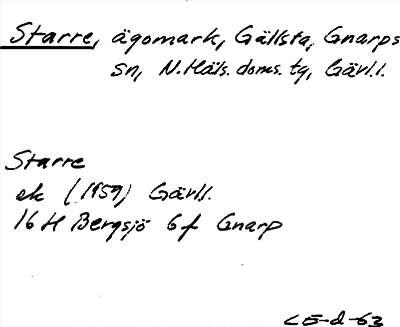 Starre, ägomark, Gällsta, Gnarps
sn, N.Häls. doms. tg, Gävl.l.
Starre
ek (1959) Gävl.
16 H Bergsjö 6f Gnarp
CE-d-63